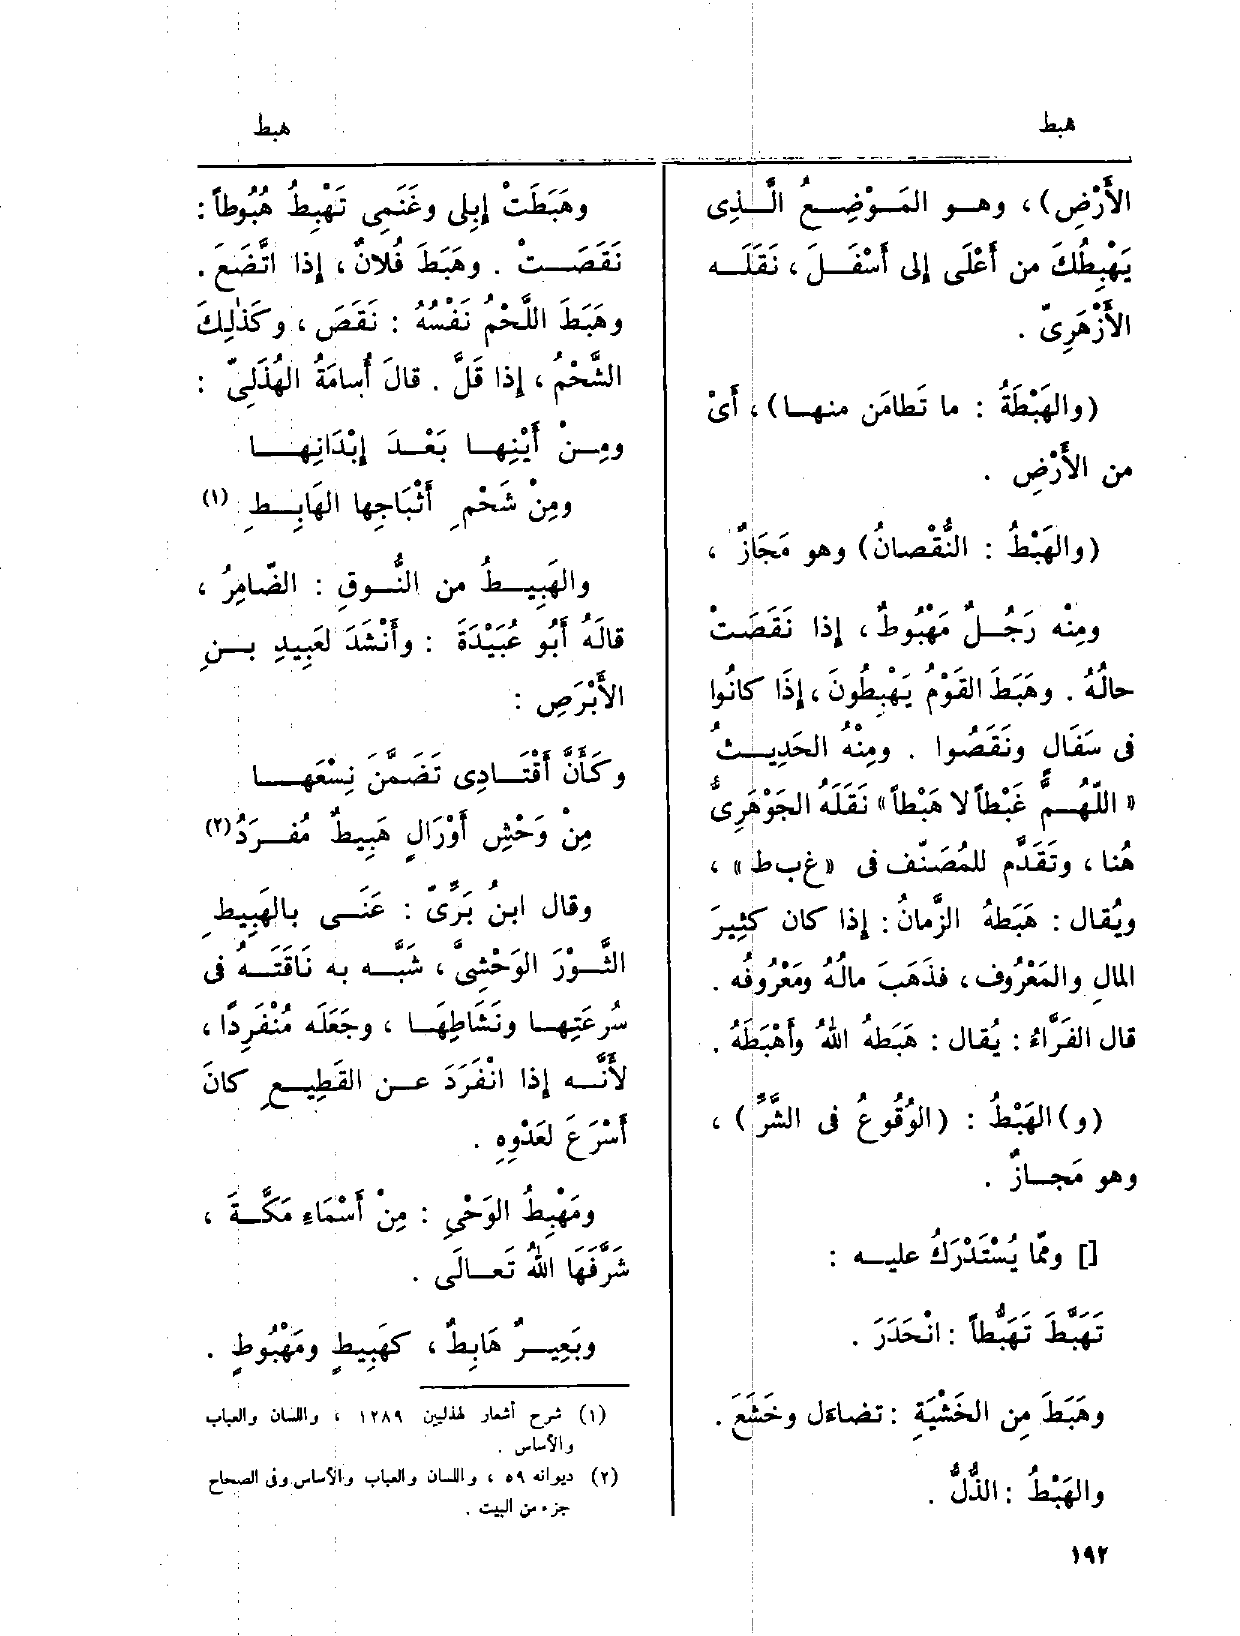 هبط
هبط
الأَرْضِ)، وهــو المَــوْضِــعُ الَّــذِى
يَهْبِطُكَ من أَعْلَى إِلى أَسْفَــلَ، نَقَلَــه
الأَزْهَرِىّ .
(والهَبْطَةُ : ما تَطامَن منهــا)، أَىْ
من الأَرْضِ .
(والهَبْطُ : النُّقْصانُ) وهو مَجَازٌ ،
ومِنْه رَجُــلٌ مَهْبُوطٌ، إِذا نَقَصَتْ
حالُهُ . وهَبَطَ القَوْمُ يَهْبِطُونَ، إِذَا كانُوا
فى سَفَال ونَقَصُوا . ومِنْهُ الحَدِيــثُ
« اللّهُــمَّ غَبْطاً لا هَبْطاً» نَقَلَهُ الجَوْهَرِىُّ
هُنا ، وتَقَدَّم للمُصَنّف فى «غ ب ط» ،
ويُقال : هَبَطهُ الزَّمانُ : إِذا كان كَثِيرَ
المالِ والمَعْرُوف، فذَهَبَ مالُهُ ومَعْرُوفُه .
قال الفَرَّاءُ : يُقال : هَبَطهُ اللهُ وأَهْبَطَهُ .
(و) الهَبْطُ : (الوُقُوعُ فى الشَّرِّ) ،
وهو مَجــازٌ .
[] ومّا يُسْتَدْرَكُ عليــه :
تَهَبَّطَ تَهَبُّطاً : انْحَدَرَ .
وهَبَطَ مِن الخَشْيَةِ : تضاءَل وخَشَعَ .
والهَبْطُ : الذُّلُّ .
وهَبَطَتْ إِبِلى وغَنَمِى تَهْبِطُ هُبُوطاً :
نَقَصَــتْ . وهَبَطَ فُلانٌ ، إِذا اتَّضَعَ .
وهَبَطَ اللَّحْمُ نَفْسُهُ : نَقَصَ ، وكَذٰلِكَ
الشَّحْمُ ، إِذا قَلَّ . قالَ أُسامَةُ الهُذَلِىّ :
ومِــنْ أَيْنِهــا بَعْــدَ إِبْدَانِهــا
ومِنْ شَحْمِ أَثْبَاجِها الهَابِــطِ (١)
والهَبِيــطُ من النُّــوقِ : الضّامِرُ ،
قالَهُ أَبُو عُبَيْدَةَ : وأَنْشَدَ لعَبِيدِ بــنِ
الأَبْرَصِ :
وكَأَنَّ أَقْتَــادِى تَضَمَّنَ نِسْعَهــا
مِنْ وَحْشِ أَوْرَالٍ هَبِيطٌ مُفــرَدُ (٢)
وقال ابنُ بَرِّىّ : عَنَــى بالهَبِيطِ
الثَّــوْرَ الوَحْشِىَّ ، شَبَّــه به نَاقَتَــهُ فى
سُرعَتِهــا ونَشَاطِهَــا ، وجَعَلَه مُنْفَرِدًا ،
لأَنَّــه إِذا انْفَرَدَ عــن القَطِيــعِ كانَ
أَسْرَعَ لعَدْوِهِ .
ومَهْبِطُ الوَحْيِ : مِنْ أَسْمَاءِ مَكَّــةَ ،
شَرَّفَهَا اللهُ تَعــالَى .
وبَعِيــرٌ هَابِطٌ ، كهَبِيطٍ ومَهْبُوطٍ .
(١) شرح أشعار لهذليين ١٢٨٩ ، واللسان والعباب
والأساس .
(٢) ديوانه ٥٩ ، واللسان والعباب والأساس.وفى الصحاح
جزء من البيت .
١٩٢